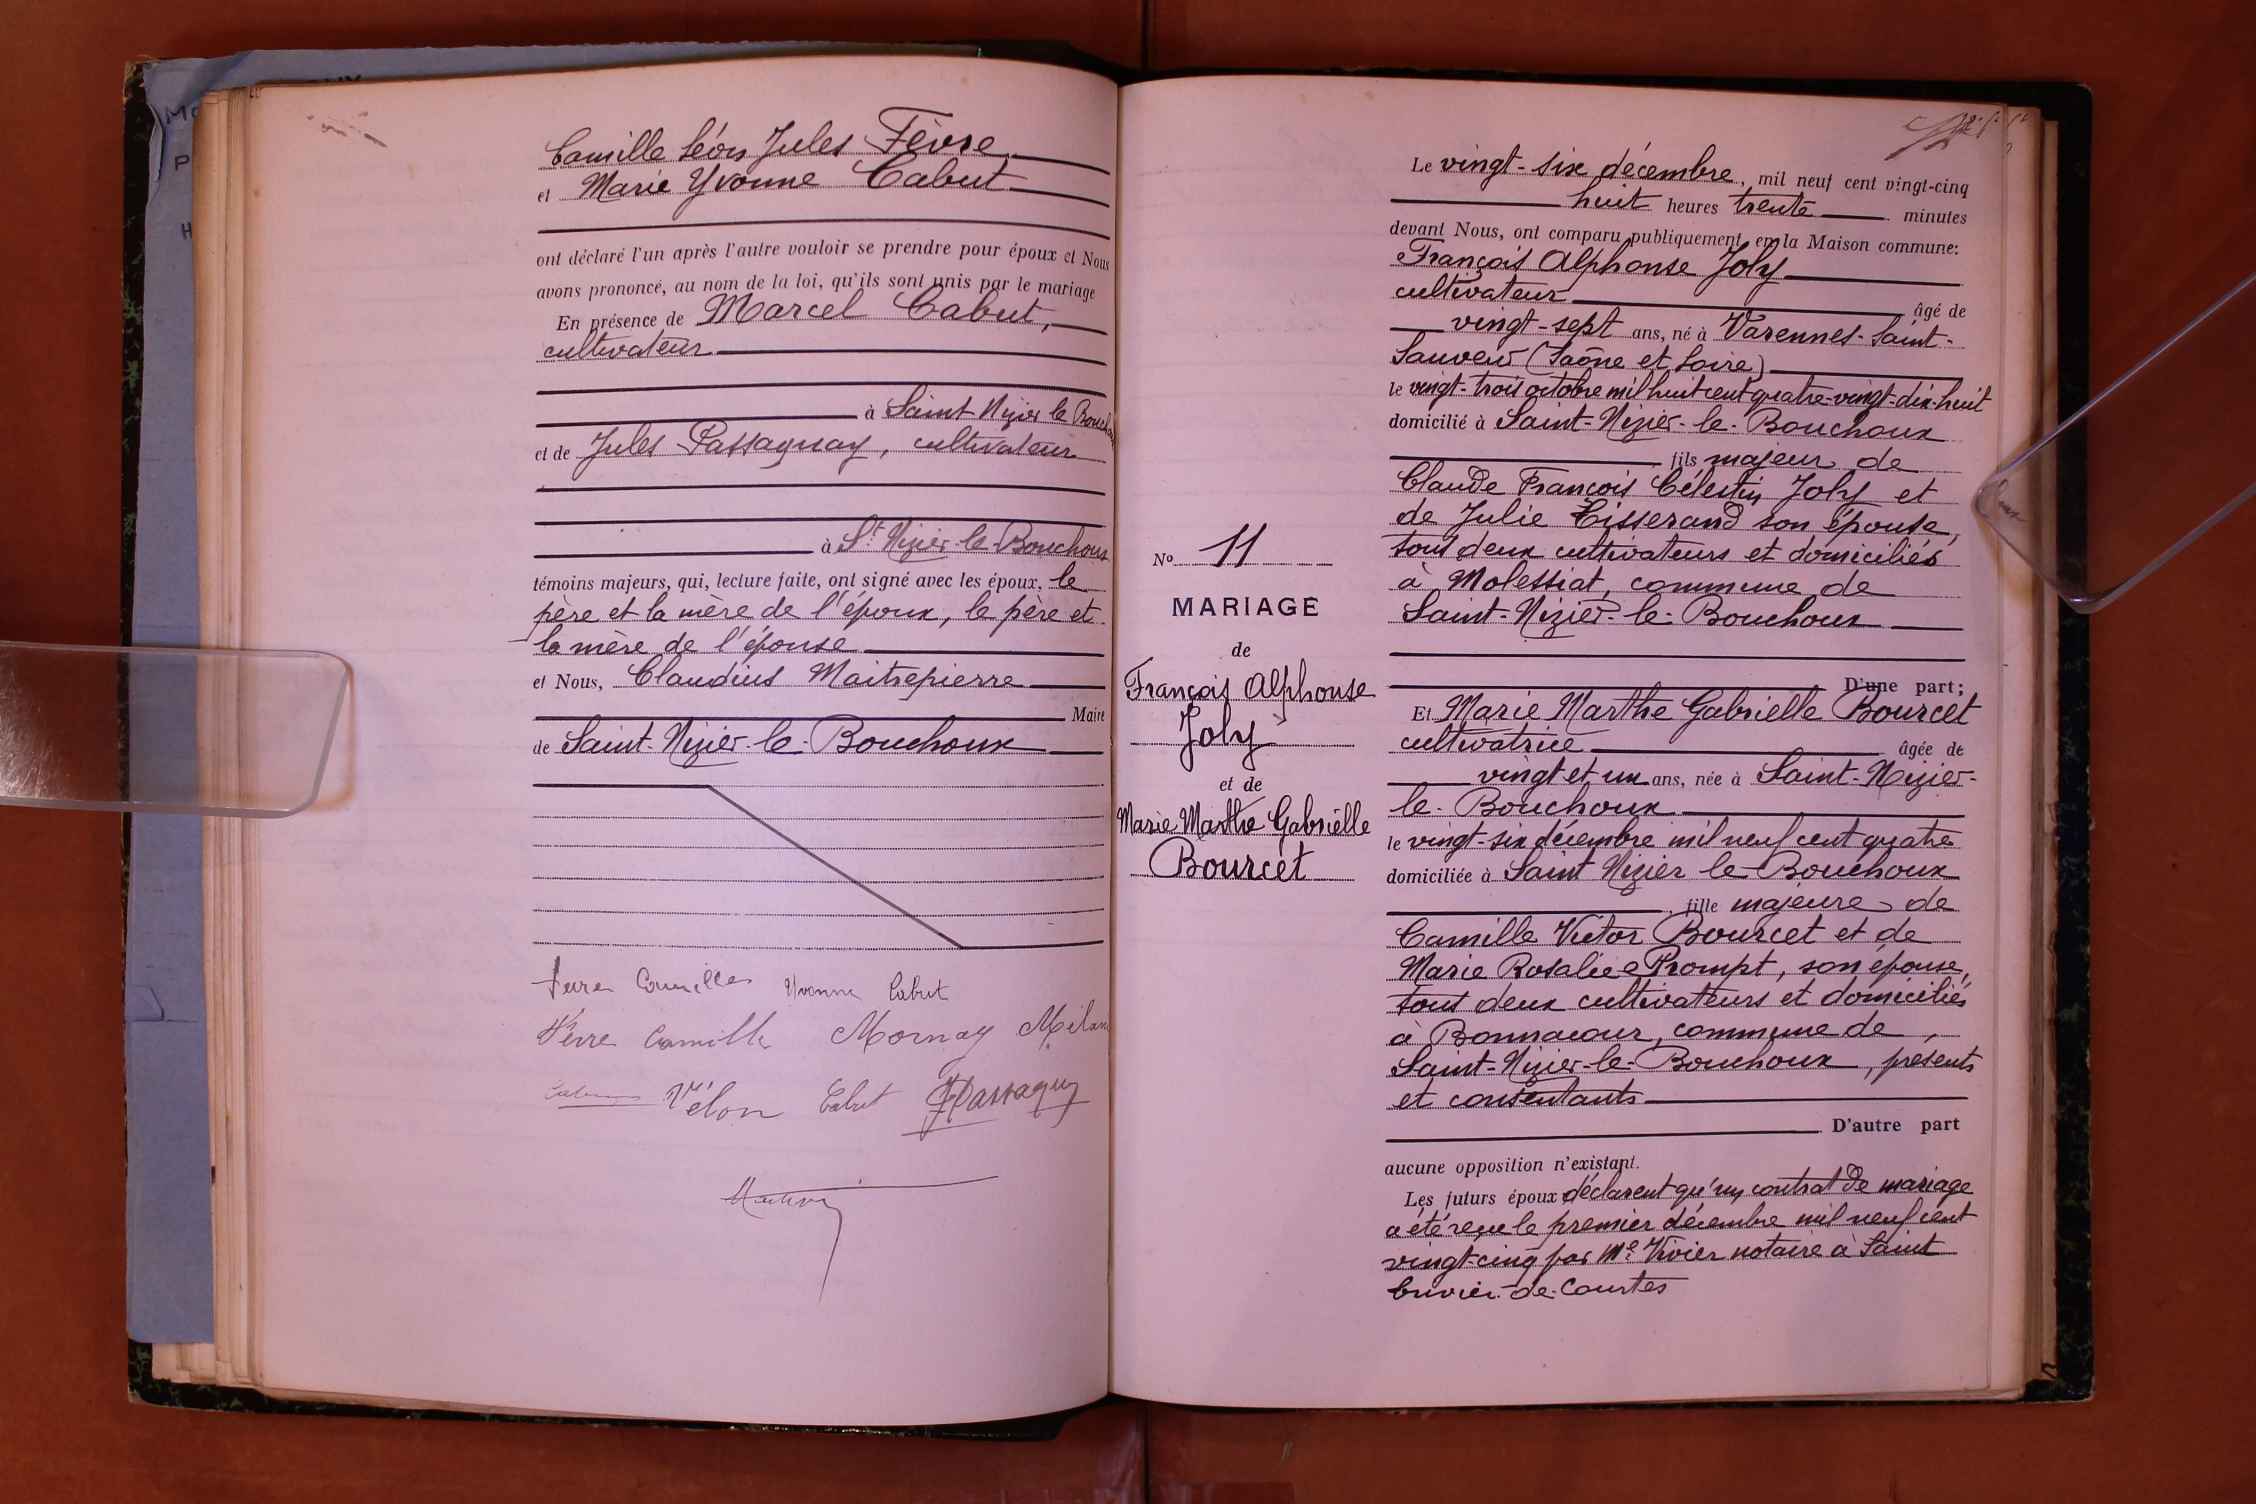 Camille Léon Jules Fèvre
et Marie Yvonne Cabut
ont déclaré l'un après l'autre vouloir se prendre pour époux et Nous
avons prononcé, au nom de la loi, qu'ils sont unis par le mariage
En présence de Marcel Cabut,
cultivateur
à Saint-Nizier le Bouchoux
et de Jules Passaquay, cultivateur
à St Nizier-le-Bouchoux
témoins majeurs, qui, lecture faite, ont signé avec les époux, le
père et la mère de l'époux, le père et
la mère de l'épouse
et Nous, Claudius Maitrepierre
Maire
de Saint-Nizier-le-Bouchoux
Camille Yvonne Cabut
Fèvre Camille Mornay
Vélon Cabut JPassaquay
Le vingt-six décembre, mil neuf cent vingt-cinq
huit heures trente minutes
devant Nous, ont comparu publiquement en la Maison commune:
François Alphonse Joly
cultivateur âgé de
vingt-sept ans, né à Varennes-Saint-
Sauveur (Saône et Loire)
le vingt-trois octobre mil huit cent quatre-vingt-dix-huit
domicilié à Saint-Nizier-le-Bouchoux
fils majeur de
Claude François Célestin Joly et
de Julie Tisserand son épouse,
tous deux cultivateurs et domiciliés
à Molessiat, commune de
Saint-Nizier-le-Bouchoux
D'une part;
No 11
MARIAGE
de
François Alphonse
Joly
et de
Marie Marthe Gabrielle
Bourcet
Et Marie Marthe Gabrielle Bourcet
cultivatrice âgée de
vingt et un ans, née à Saint-Nizier-
le-Bouchoux
le vingt-six décembre mil neuf cent quatre
domiciliée à Saint Nizier le Bouchoux
fille majeure de
Camille Victor Bourcet et de
Marie Rosalie Prompt, son épouse,
tous deux cultivateurs et domiciliés
à Bonnacour, commune de
Saint-Nizier-le-Bouchoux, présents
et consentants
D'autre part
aucune opposition n'existant.
Les futurs époux déclarent qu'un contrat de mariage
a été reçu le premier décembre mil neuf cent
vingt-cinq par Me Vivier notaire à Saint
de-Courtes